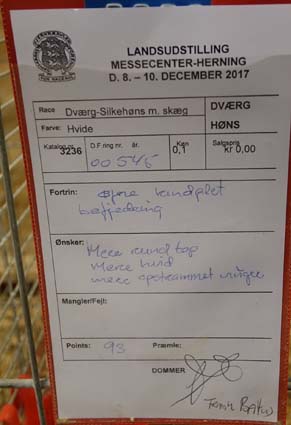 LANDSUDSTILLING
MESSECENTER-HERNING
D. 8. – 10. DECEMBER 2017
Race Dværg-Silkehøns m. skæg
DVÆRG
Farve: Hvide
HØNS
Katalog nr. 3236 D.F.ring nr. år. 00545 Køn 0,1 Salgspris kr 0,00
Fortrin:
befjedring
Ønsker:
Mere rund top
Mere hvid
mere opstrammet vinger
Mangler/Fejl:
Points: 93 Præmie:
DOMMER